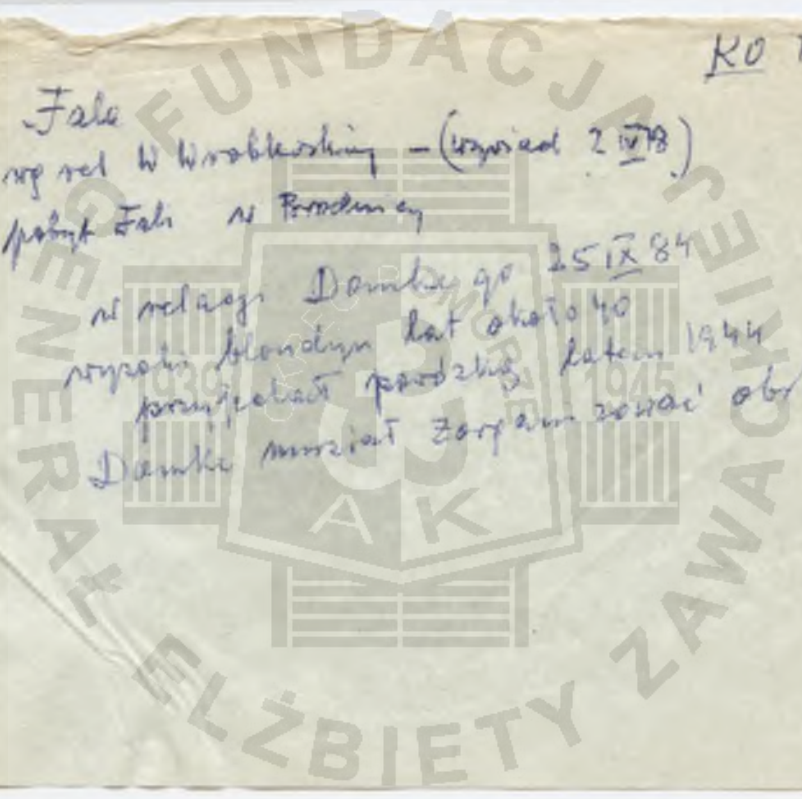 KO
Fala
wg rel W Wrobkoskiej – (wywiad 2 IV 78)
pobyt Fali w Brodnicy
w relacji Domkego 25 IX 84
wysoki blondyn lat około 40
przyjechał pod latem 1944
Domke musiał zorganizować obs
FUNDACJA
GENERAŁ ELŻBIETY ZAWACKIEJ
POMORZE
1939 1945
AK